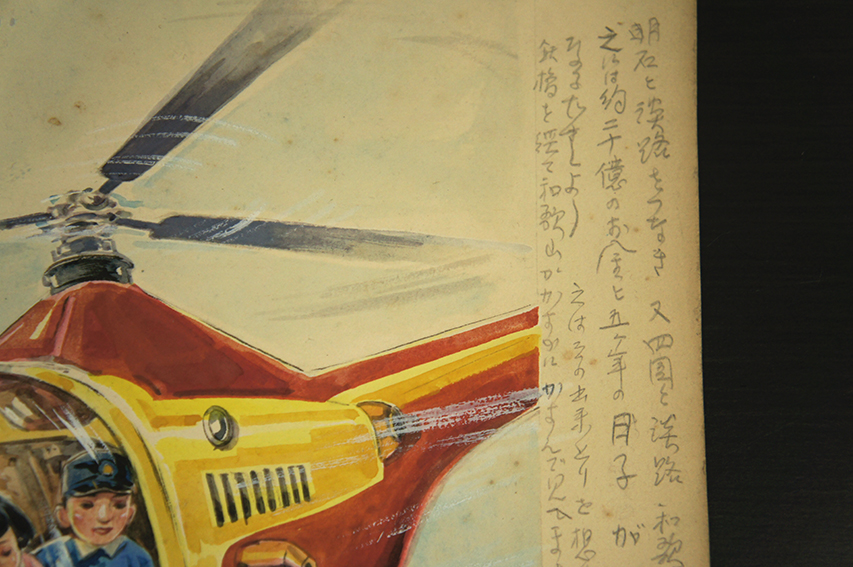 明石と淡路をつなぎ 又 四国と淡路 和歌
之には約二千億のお金と五ヶ年の月子が
なるでましよう 之はその出来上りを想
鉄橋を経て和歌山がかすかにかすんで見へま